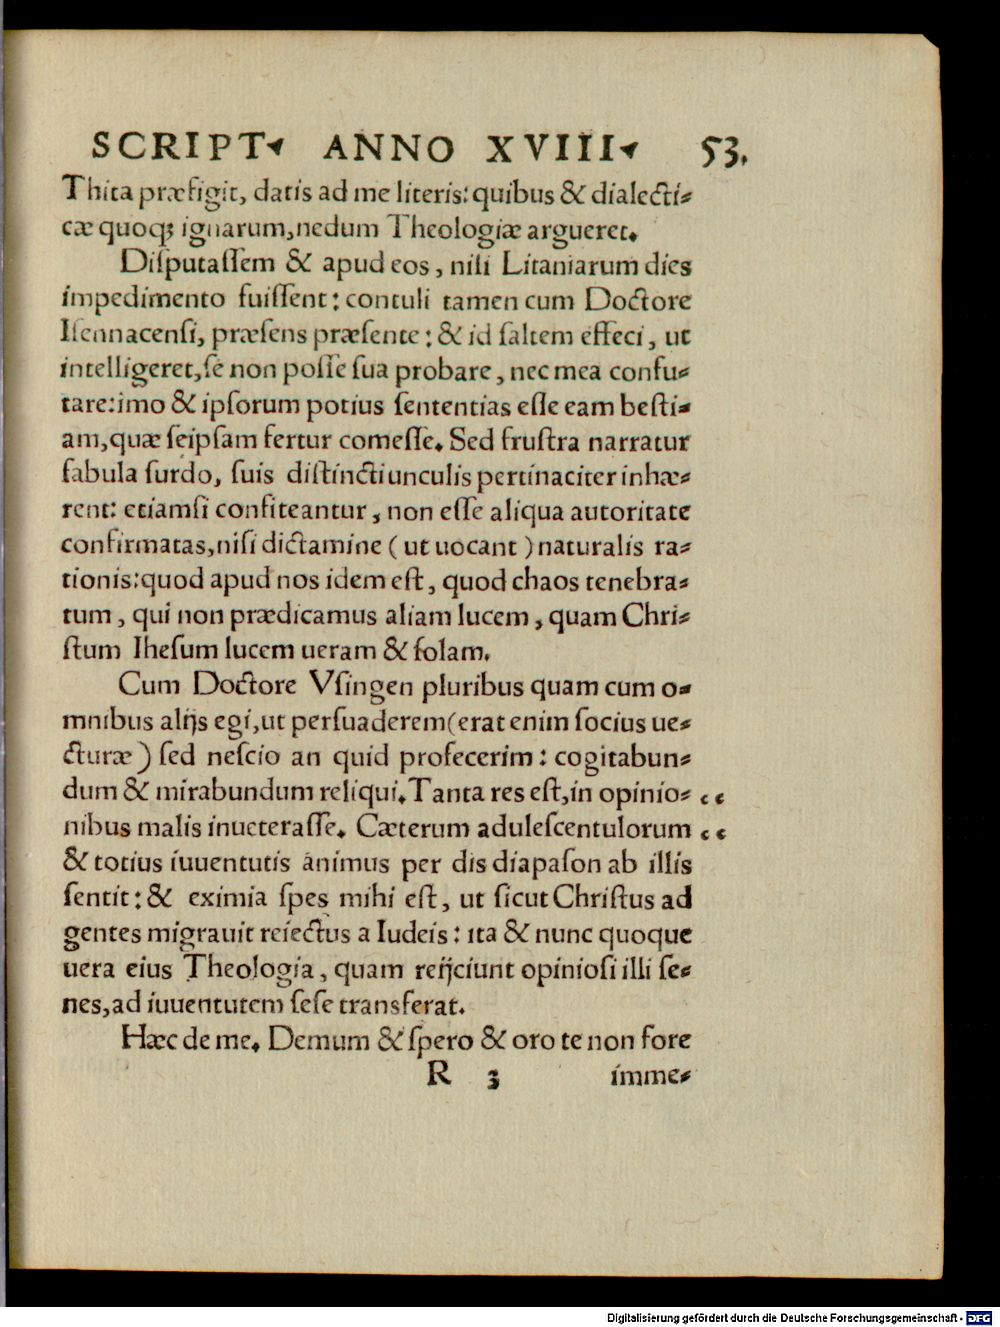 SCRIPT. ANNO XVIII. 53.
Thita præfigit, datis ad me literis: quibus & dialecti-
cæ quoqꝫ ignarum, nedum Theologiæ argueret.
Diſputaſſem & apud eos, niſi Litaniarum dies
impedimento fuiſſent: contuli tamen cum Doctore
Iſennacenſi, præſens præſente: & id ſaltem effeci, ut
intelligeret, ſe non poſſe ſua probare, nec mea confu-
tare: imo & ipſorum potius ſententias eſſe eam beſti-
am, quæ ſeipſam fertur comeſſe. Sed fruſtra narratur
fabula ſurdo, ſuis diſtinctiunculis pertinaciter inhæ-
rent: etiamſi confiteantur, non eſſe aliqua autoritate
confirmatas, niſi dictamine ( ut uocant ) naturalis ra-
tionis: quod apud nos idem eſt, quod chaos tenebra-
rum, qui non prædicamus aliam lucem, quam Chri-
ſtum Iheſum lucem ueram & ſolam.
Cum Doctore Vſingen pluribus quam cum o-
mnibus alijs egi, ut perſuaderem (erat enim ſocius ue-
cturæ) ſed neſcio an quid profecerim: cogitabun-
dum & mirabundum reliqui. Tanta res eſt, in opinio- “
nibus malis inueteraſſe. Cæterum aduleſcentulorum “
& totius iuuentutis animus per dis diapaſon ab illis
ſentit: & eximia ſpes mihi eſt, ut ſicut Chriſtus ad
gentes migrauit reiectus a Iudeis: ita & nunc quoque
uera eius Theologia, quam reijciunt opinioſi illi ſe-
nes, ad iuuentutem ſeſe transferat.
Hæc de me. Demum & ſpero & oro te non fore
R 3 imme-
Digitalisierung gefördert durch die Deutsche Forschungsgemeinschaft - DFG